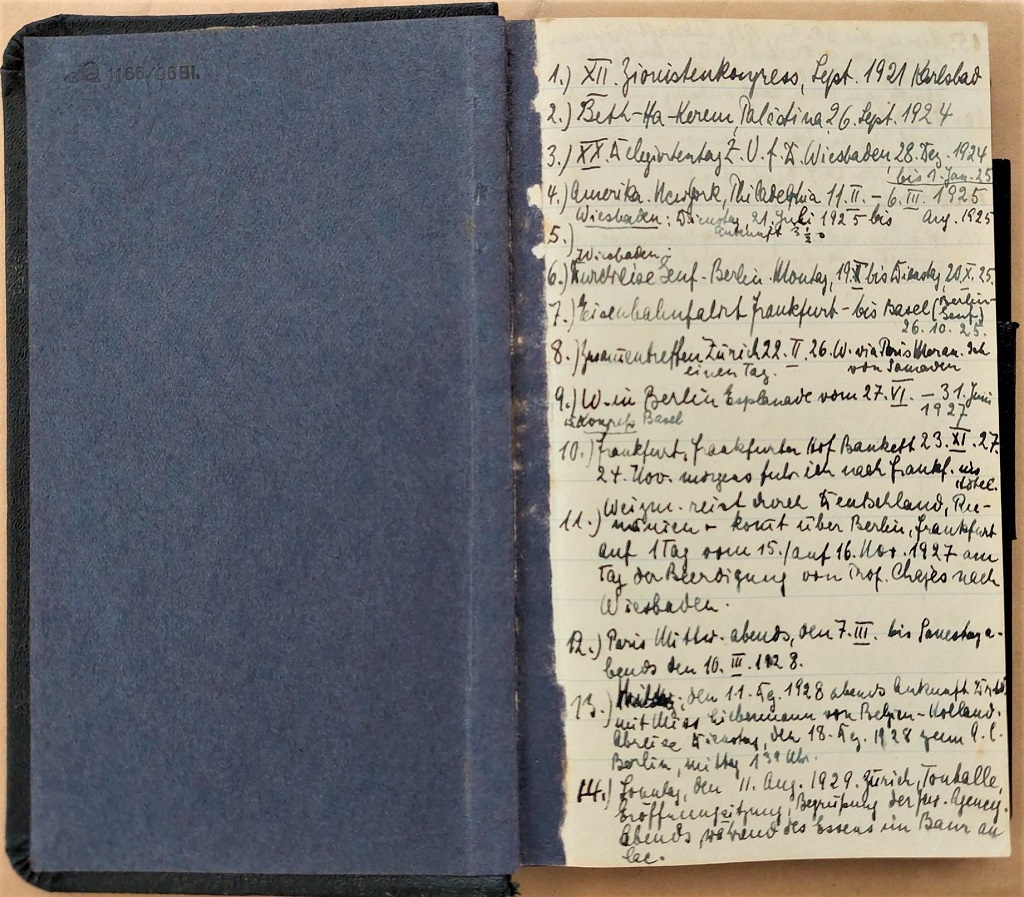 1166/96 Bl.
1.) XII. Zionistenkongress, Sept. 1921 Karlsbad
2.) Beth-Ha-Kerem, Palästina 26. Sept. 1924
3.) XX. Delegiertentag Z.V.f.D. Wiesbaden 28. Dez. 1924
bis 1. Jan. 25
4.) Amerika. NewYork, Philadelphia 11.II. – 6.III. 1925
Wiesbaden: Dienstag, 21. Juli 1925 bis Aug. 1925
5.) Ankunft 3½
Wiesbaden:
6.) Durchreise Genf-Berlin. Montag, 19.X bis Dienstag, 20.X.25.
7.) Eisenbahnfahrt Frankfurt – bis Basel (Berlin-
Genf)
26.10.25.
8.) Zusammentreffen Zürich 22.II.26. W. via Paris Meran. Ich
einen Tag. von Samaden
9.) W. in Berlin Esplanade vom 27.VI. – 31. Juni
1927
Kongress Basel
10.) Frankfurt, Frankfurter Hof Bankett 23.XI.27.
24. Nov. morgens fuhr ich nach Frankf. ins
Hotel.
Weizm. reist durch Deutschland, Ru-
11.) mänien + komt über Berlin, Frankfurt
auf 1 Tag vom 15./auf 16. Nov. 1927 am
Tag der Beerdigung von Prof. Chajes nach
Wiesbaden.
12.) Paris Mittw. abends, den 7.III. bis Samstag a-
bends den 10.III.1928.
13.) den 11. Dez. 1928 abends Ankunft
mit Miss Liebermann von Belgien-Holland.
Abreise Dienstag, den 18. Dez. 1928 zum A.C.
Berlin, mittag 1 39 Uhr.
14.) Sonntag, den 11. Aug. 1929. Zürich, Tonhalle,
Eröffnungssitzung, Begrüßung der Jew. Agency.
Abends, während des Essens im Baur au
lac.